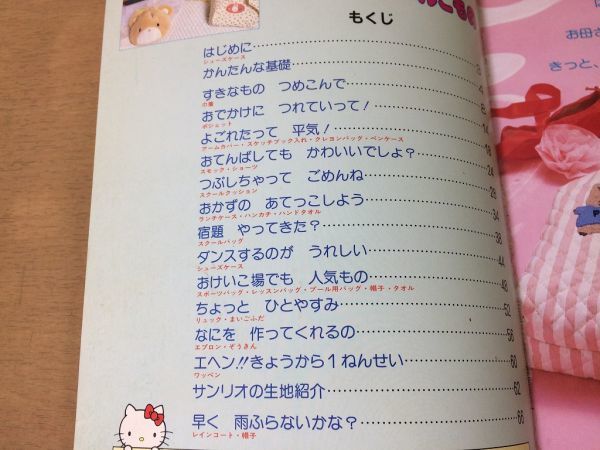 もくじ
はじめに
シューズケース
かんたんな基礎 4
すきなもの つめこんで 8
巾着
おでかけに つれていって! 14
ポシェット
よごれたって 平気! 18
アームカバー・スケッチブック入れ・クレヨンバッグ・ペンケース
おてんばしても かわいいでしょ? 24
スモック・ショーツ
つぶしちゃって ごめんね 29
スクールクッション
おかずの あてっこしよう 34
ランチケース・ハンカチ・ハンドタオル
宿題 やってきた? 38
スクールバッグ
ダンスするのが うれしい 44
シューズケース
おけいこ場でも 人気もの 48
スポーツバッグ・レッスンバッグ・プール用バッグ・帽子・タオル
ちょっと ひとやすみ 52
リュック・まいごふだ
なにを 作ってくれるの 56
エプロン・ぞうきん
エヘン!!きょうから1ねんせい 60
ワッペン
サンリオの生地紹介 62
早く 雨ふらないかな? 66
レインコート・帽子
お母さ
きっと、